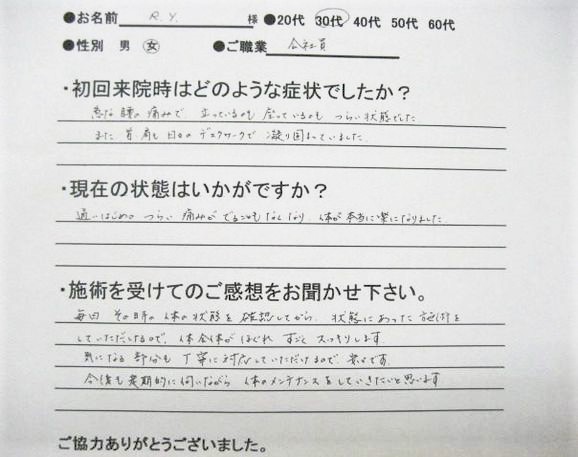 ●お名前 R.Y. 様 ●20代 30代 40代 50代 60代
●性別 男 女 ●ご職業 会社員
・初回来院時はどのような症状でしたか？
急な腰の痛みで 立っているのも 座っているのも つらい状態でした
また 首・肩も 日々の デスクワークで 凝り固まっていました
・現在の状態はいかがですか？
通いはじめの つらい 痛みが でることもなくなり、体が本当に楽になりました
・施術を受けてのご感想をお聞かせ下さい。
毎回 その時の 体の状態を 確認してから、状態にあった 施術を
していただけるので、体全体が ほぐれ すごく スッキリします
気になる 部分も 丁寧に対応していただけるので、安心です
今後も定期的に伺いながら 体のメンテナンスをしていきたいと思います
ご協力ありがとうございました。